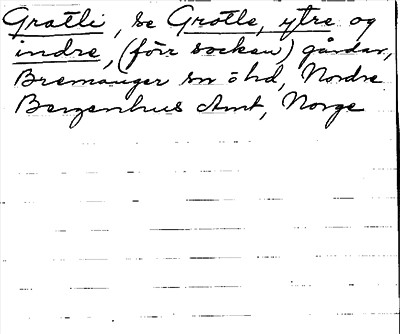 Gratli, se Grotle, ytre og
indre, (förr socken) gårdar,
Bremanger sn o hd, Nordre
Bergenhus Amt, Norge